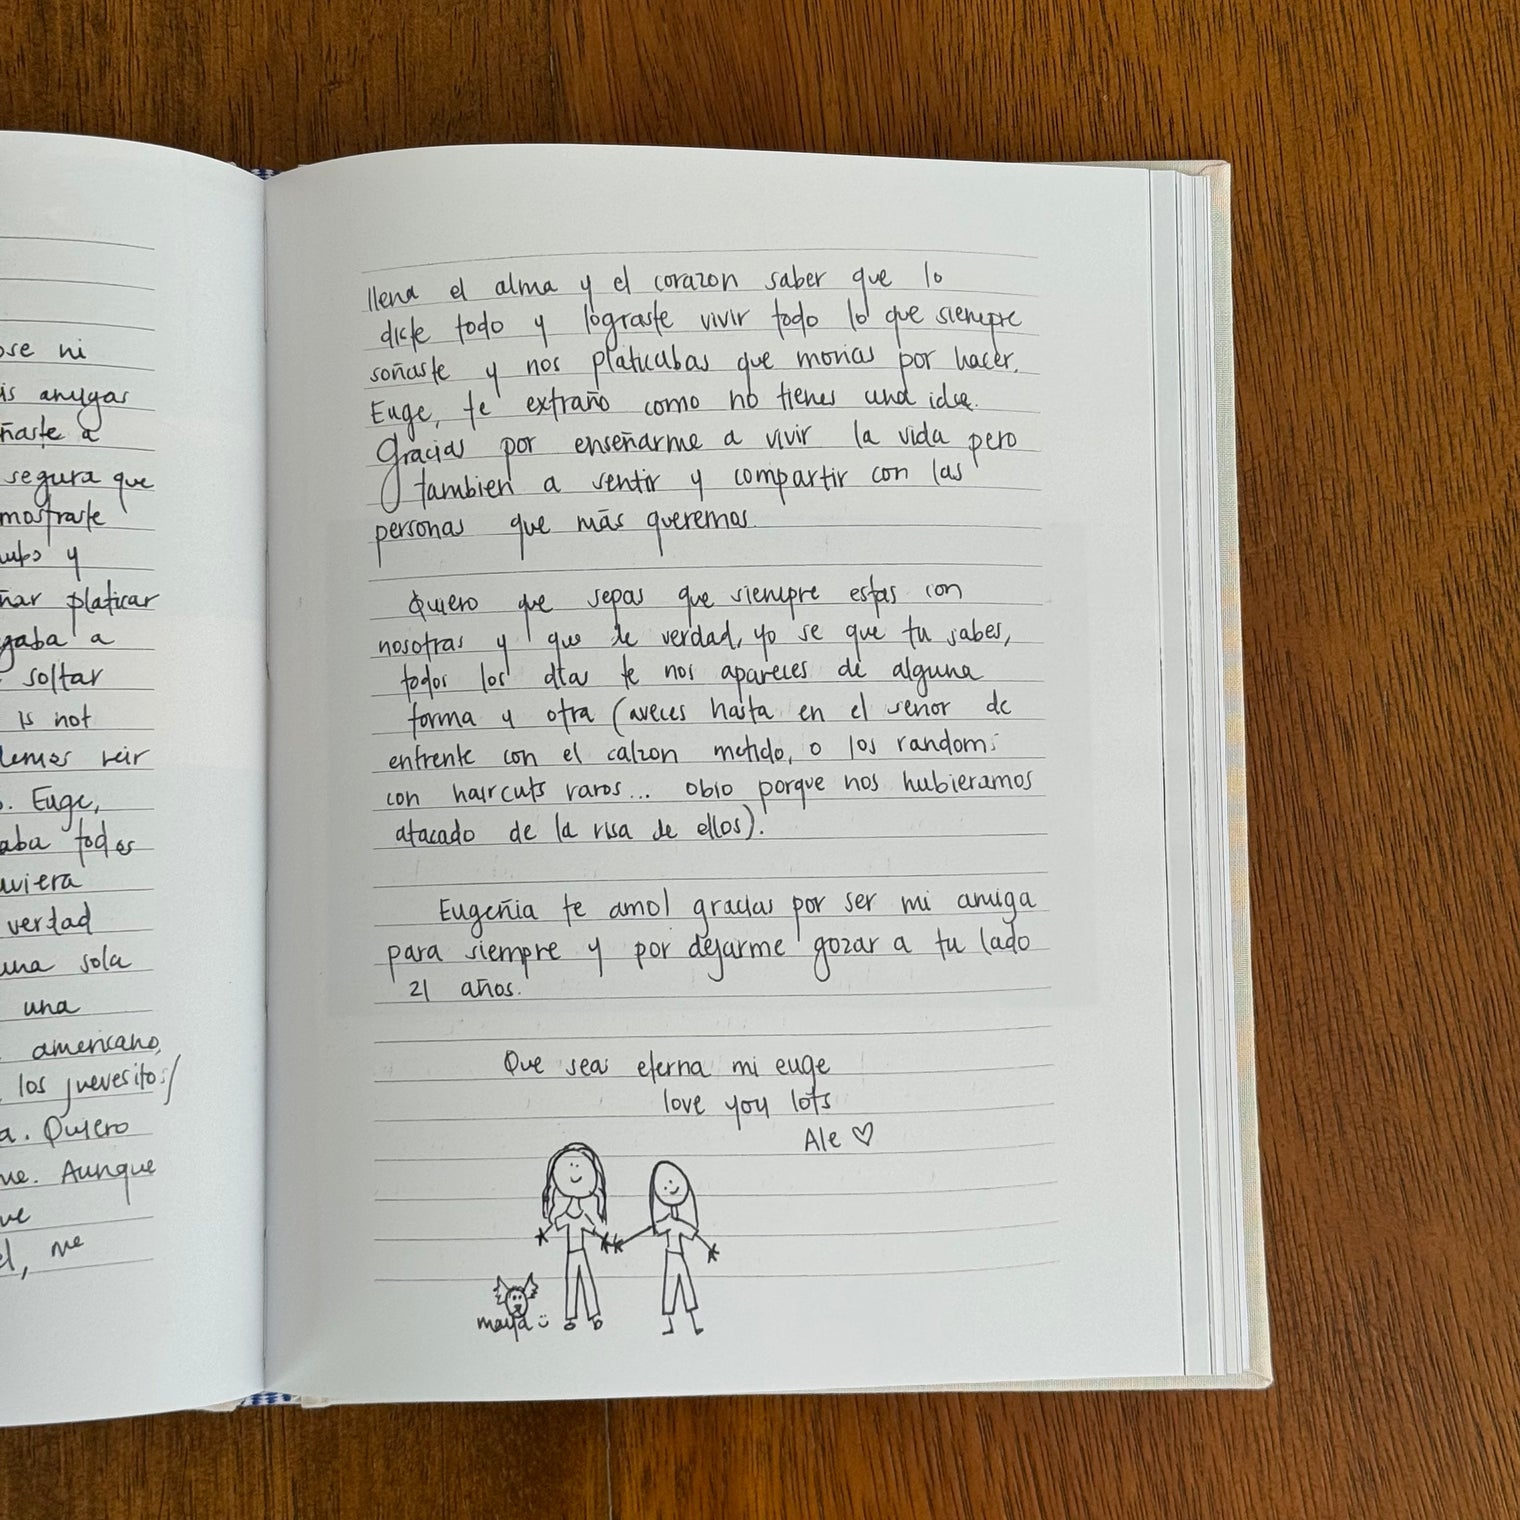 ose ni
is amigas
ñaste a
segura que
mostraste
y
ñar platicar
gaba a
soltar
is not
demos reir
o. Euge,
aba todos
uviera
verdad
una sola
una
americano,
los juevesitos/
a. Quiero
ue. Aunque
ve
el, me
llena el alma y el corazon saber que lo
diste todo y lograste vivir todo lo que siempre
soñaste y nos platicabas que morias por hacer.
Euge, te extraño como no tienes una idea.
Gracias por enseñarme a vivir la vida pero
tambien a sentir y compartir con las
personas que más queremos.
Quiero que sepas que siempre estas con
nosotras y que de verdad, yo se que tu sabes,
todos los dias te nos apareces de alguna
forma y otra (aveces hasta en el senor de
enfrente con el calzon metido, o los randoms
con haircuts raros... obio porque nos hubieramos
atacado de la risa de ellos).
Eugeñia te amo! gracias por ser mi amiga
para siempre y por dejarme gozar a tu lado
21 años.
Que seas eterna mi euge
love you lots
Ale ♡
maya :)